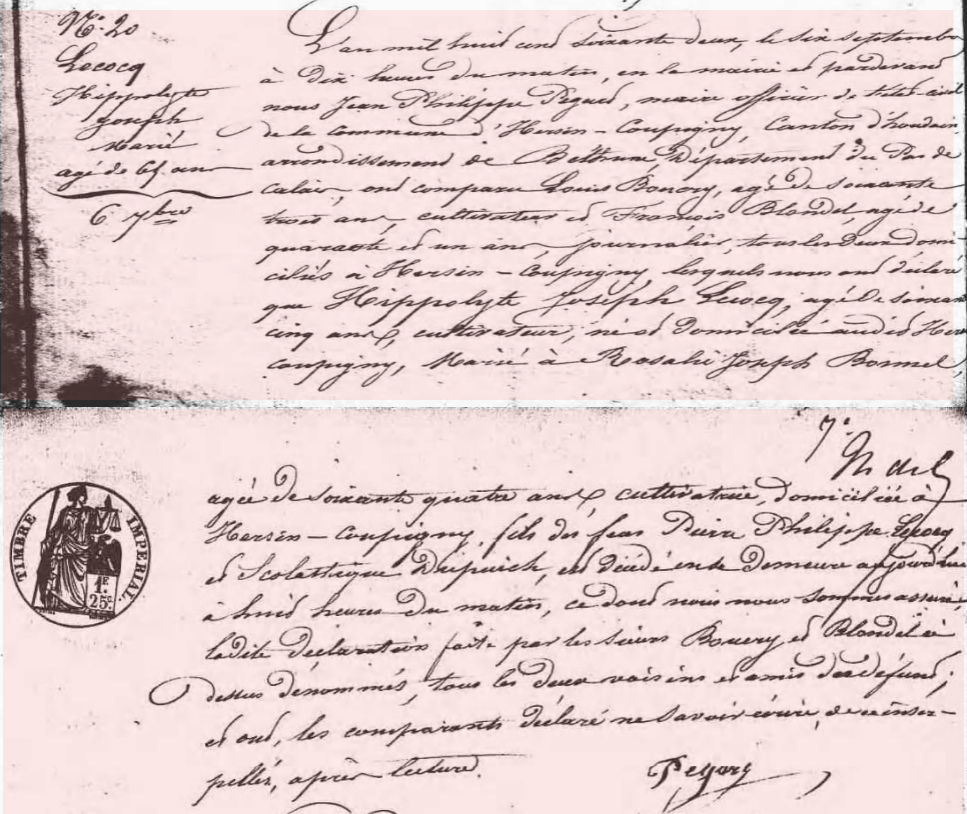 N.º 20
Lecocq
Hippolyte
Joseph
Marié
agé de 65 ans
6 7bre
L'an mil huit cent soixante deux, le six septembre
à dix heures du matin, en la mairie et pardevant
nous Jean Philippe Pegard, maire officier de l'état civil
de la commune d'Hersin-Coupigny, Canton d'houdain,
arrondissement de Bethune, Département du Pas de
calais, ont comparu Louis Bouory, agé de soixante
trois ans, cultivateur et François Blondel agé de
quarante et un ans journalier, tous les deux domi-
ciliés à Hersin-Coupigny, lesquels nous ont déclaré
que Hippolyte Joseph Lecocq, agé de soixante
cinq ans, cultivateur, né et domicilié audit Hersin
coupigny, Marié à Rosalie Joseph Bonnel,
7.e
agée de soixante quatre ans cultivatrice, domiciliée à
Hersin-Coupigny, fils des feus Pierre Philippe Lecocq
et Scolastique, est décédé en sa demeure aujourd'hui
à huit heures du matin, ce dont nous nous sommes assuré,
ladite déclaration faite par les sieurs Bouory et Blondel ci
dessus dénommés, tous les deux voisins et amis du défunt;
et ont, les comparants déclaré ne savoir écrire, de ce inter-
pellés, après lecture.
Pegard
TIMBRE IMPERIAL
1F.
25c.